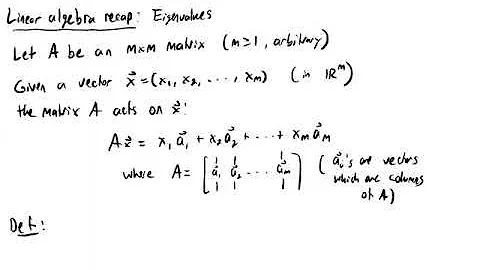 Linear algebra recap: Eigenvalues
Let A be an m×m matrix (m≥1, arbitrary)
Given a vector x⃗ = (x₁, x₂, ..., xₘ) (in ℝᵐ)
the matrix A acts on x⃗:
Ax⃗ = x₁a⃗₁ + x₂a⃗₂ + ... + xₘa⃗ₘ
where A = [a⃗₁ a⃗₂ ... a⃗ₘ] (a⃗ᵢ's are vectors
which are columns
of A)
Def: